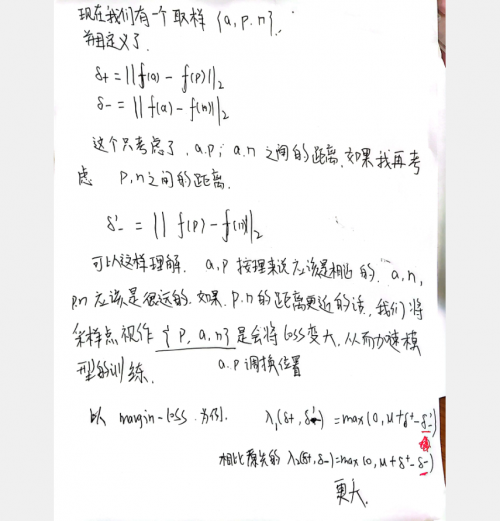 现在我们有一个取样 {a, p, n},
并且定义了.
δ+ = ||f(a) - f(p)||₂
δ- = ||f(a) - f(n)||₂
这个只考虑了, a.p; a.n 之间的距离, 如果我再考
虑 p,n之间的距离.
δ'- = || f(p) - f(n)||₂
可以这样理解. a,p 按理来说应该是相近的. a,n,
p,n 应该是很远的. 如果 p.n的距离更近的话, 我们将
采样点视作 {p, a, n} 是会将loss变大, 从而加速模
型的训练.
a.p 调换位置
以 margin-loss 为例. λ₁(δ+, δ'-) = max(0, μ+δ+-δ'-)
相比原先的 λ₂(δ+,δ-)=max(0, μ+δ+-δ-)
更大.